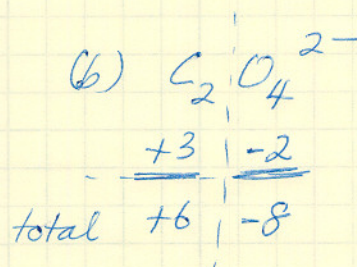 (b) C₂O₄²⁻
+3 -2
total +6 -8